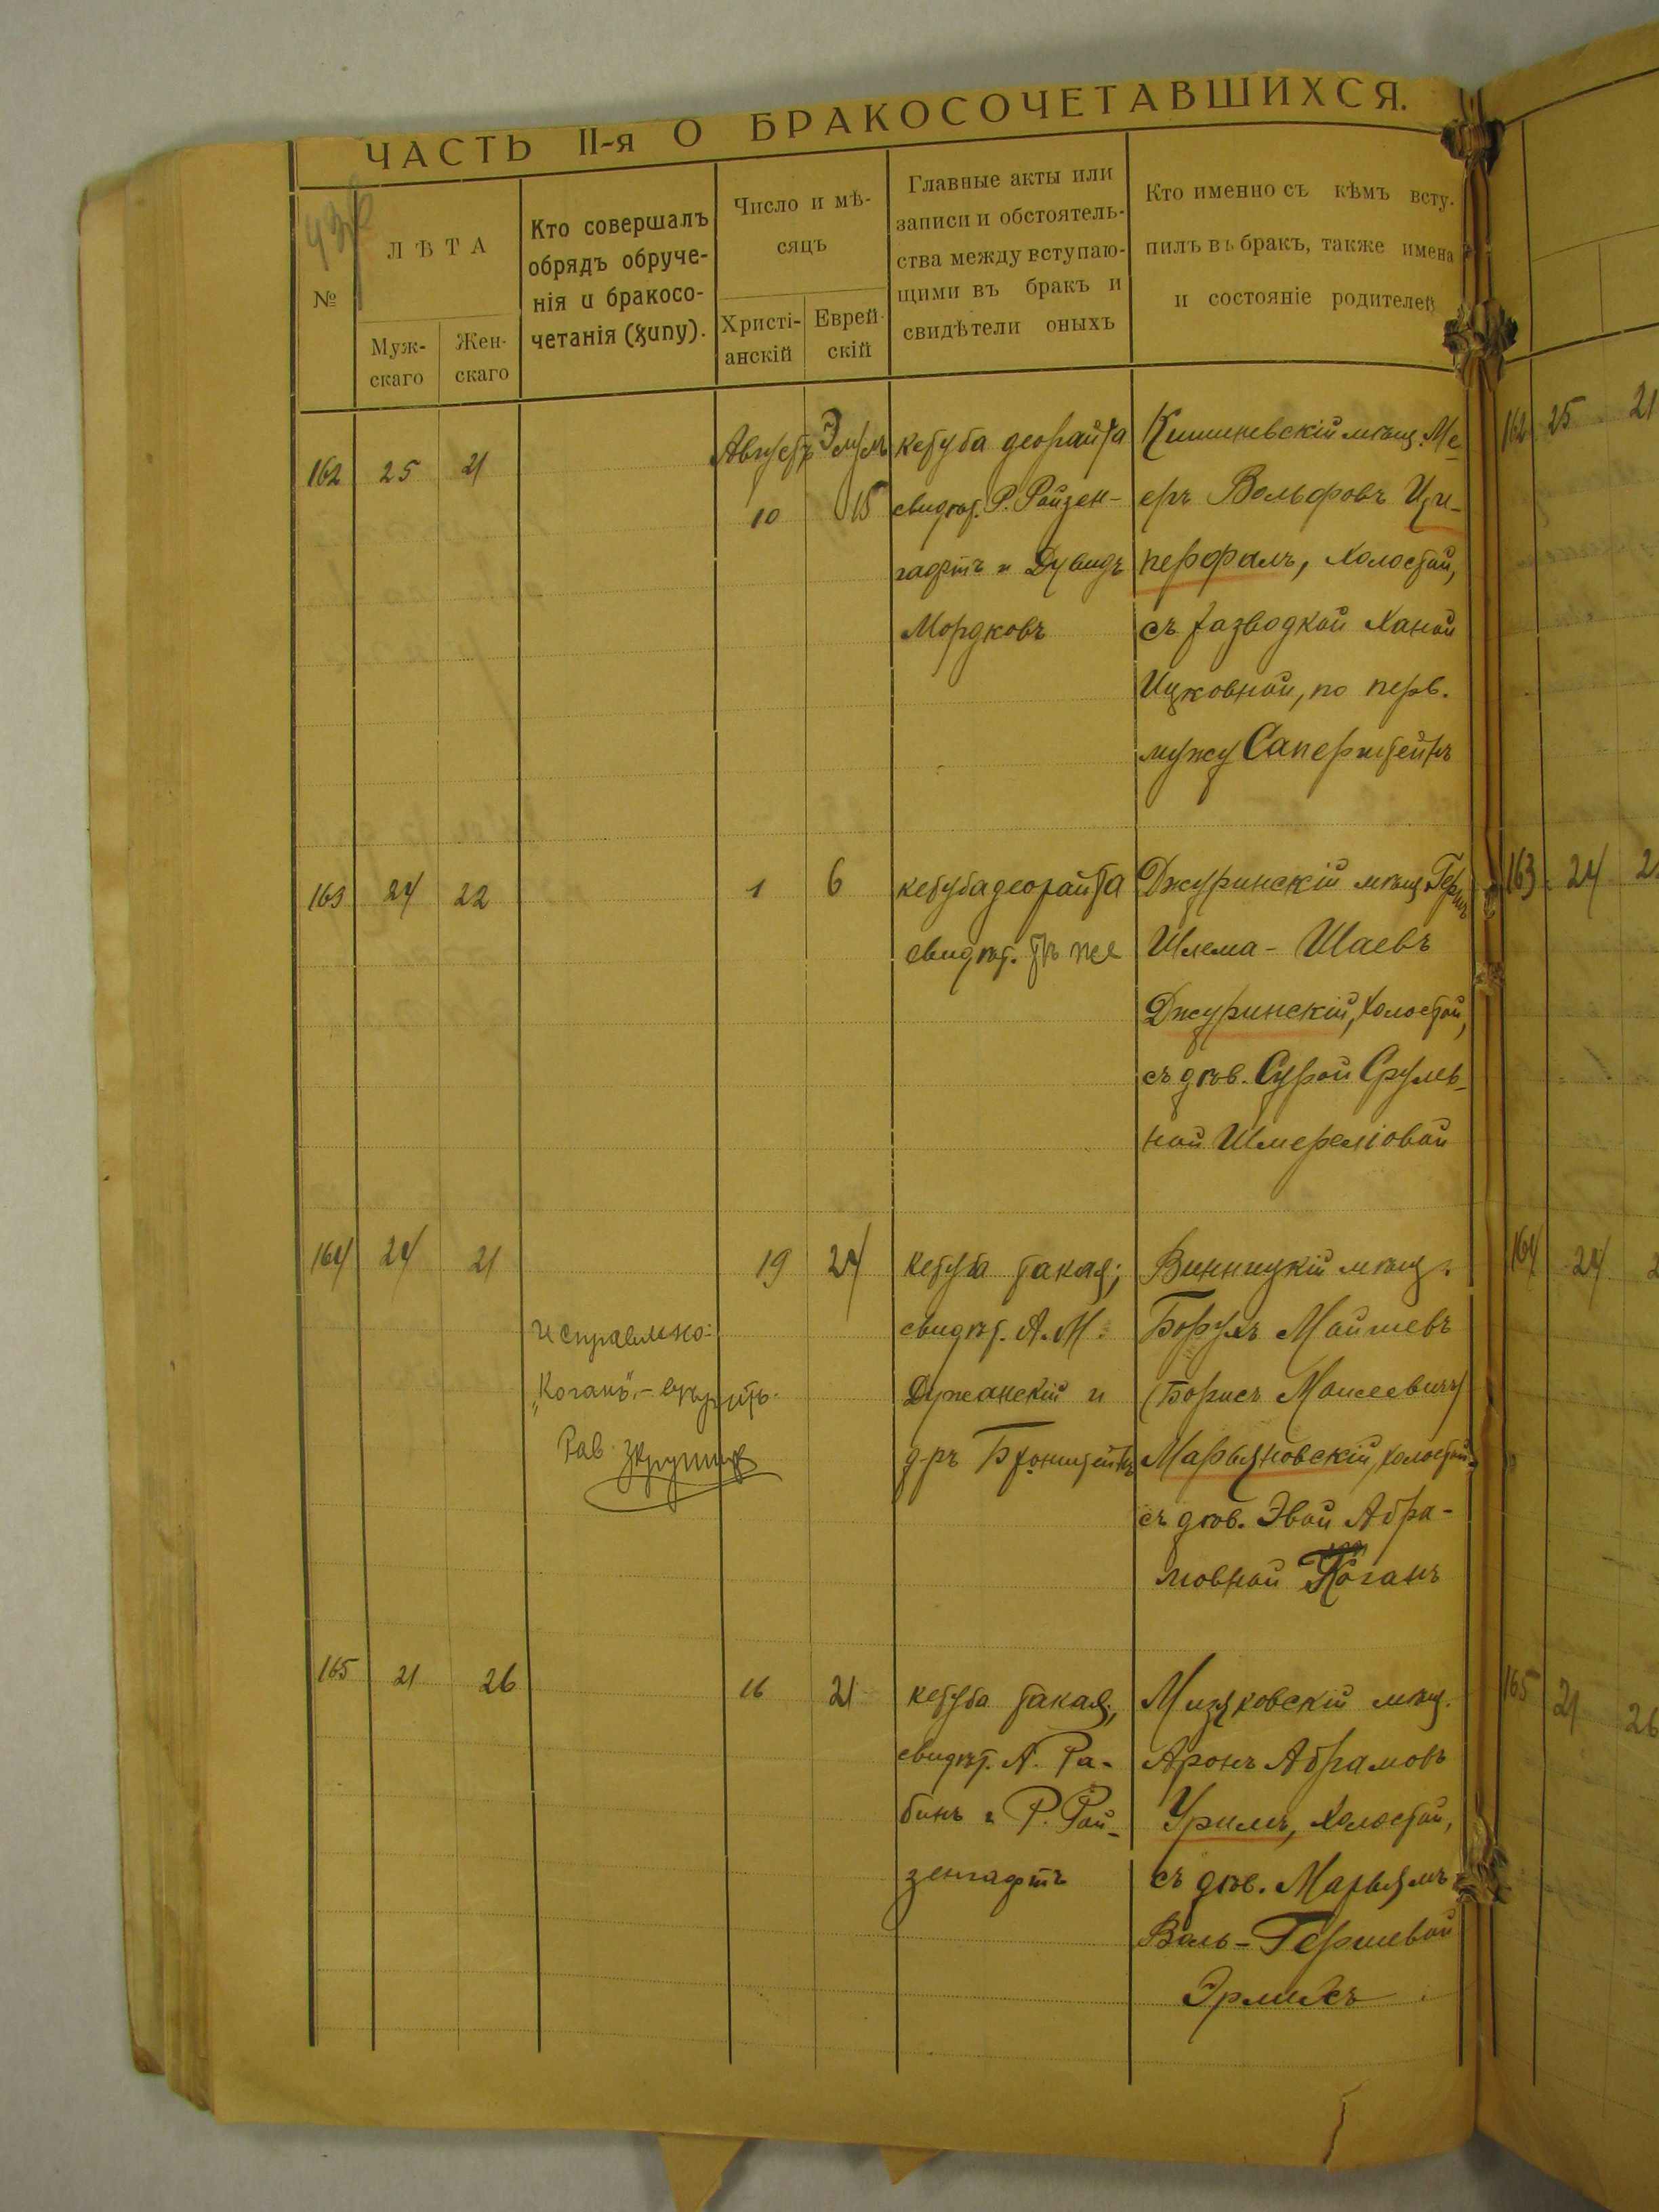 ЧАСТЬ II-я О БРАКОСОЧЕТАВШИХСЯ.
№
ЛѢТА
Муж-
скаго
Жен-
скаго
Кто совершалъ
обрядъ обруче-
нія и бракосо-
четанія (хупу).
Число и мѣ-
сяцъ
Христі-
анскій
Еврей-
скій
Главные акты или
записи и обстоятель-
ства между вступаю-
щими въ бракъ и
свидѣтели оныхъ
Кто именно съ кѣмъ всту-
пилъ въ бракъ, также имена
и состояніе родителей
162 25 21
Августъ Элулъ
10 15
кетуба деорайта
свидѣт. Р. Ройзен-
гафтъ и Дувидъ
Мордковъ
Кишиневскій мѣщ. Ме-
еръ Вольфовъ Ци-
перфалъ, холостой,
съ разводкой Ханой
Ицковной, по перв.
мужу Саперштейнъ
163 24 22
1 6
кетуба деорайта
свидѣт. тѣ же
Джуринскій мѣщ. Гершъ
Шлема-Шаевъ
Джуринскій, холостой,
съ дѣв. Сурой Срулев-
ной Шмереліовой
164 24 21
исправлено:
„Коганъ" - вѣрить.
Рав.
19 24
кетуба такая;
свидѣт. А. М.
Дужанскій и
д-ръ Бронштейнъ
Винницкій мѣщ.
Борухъ Мойшевъ
(Борисъ Моисеевичъ)
Марьяновскій, холостой,
съ дѣв. Эвой Абра-
мовной Коганъ
165 21 26
16 21
кетуба такая;
свидѣт. А. Ра-
бинъ и Р. Рой-
зенгафтъ
Мизяковскій мѣщ.
Аронъ Абрамовъ
Урилъ, холостой,
съ дѣв. Марьямъ
Воль-Гершевой
Эрлихъ
162 25 21
163 24 2
164 24 2
165 21 26